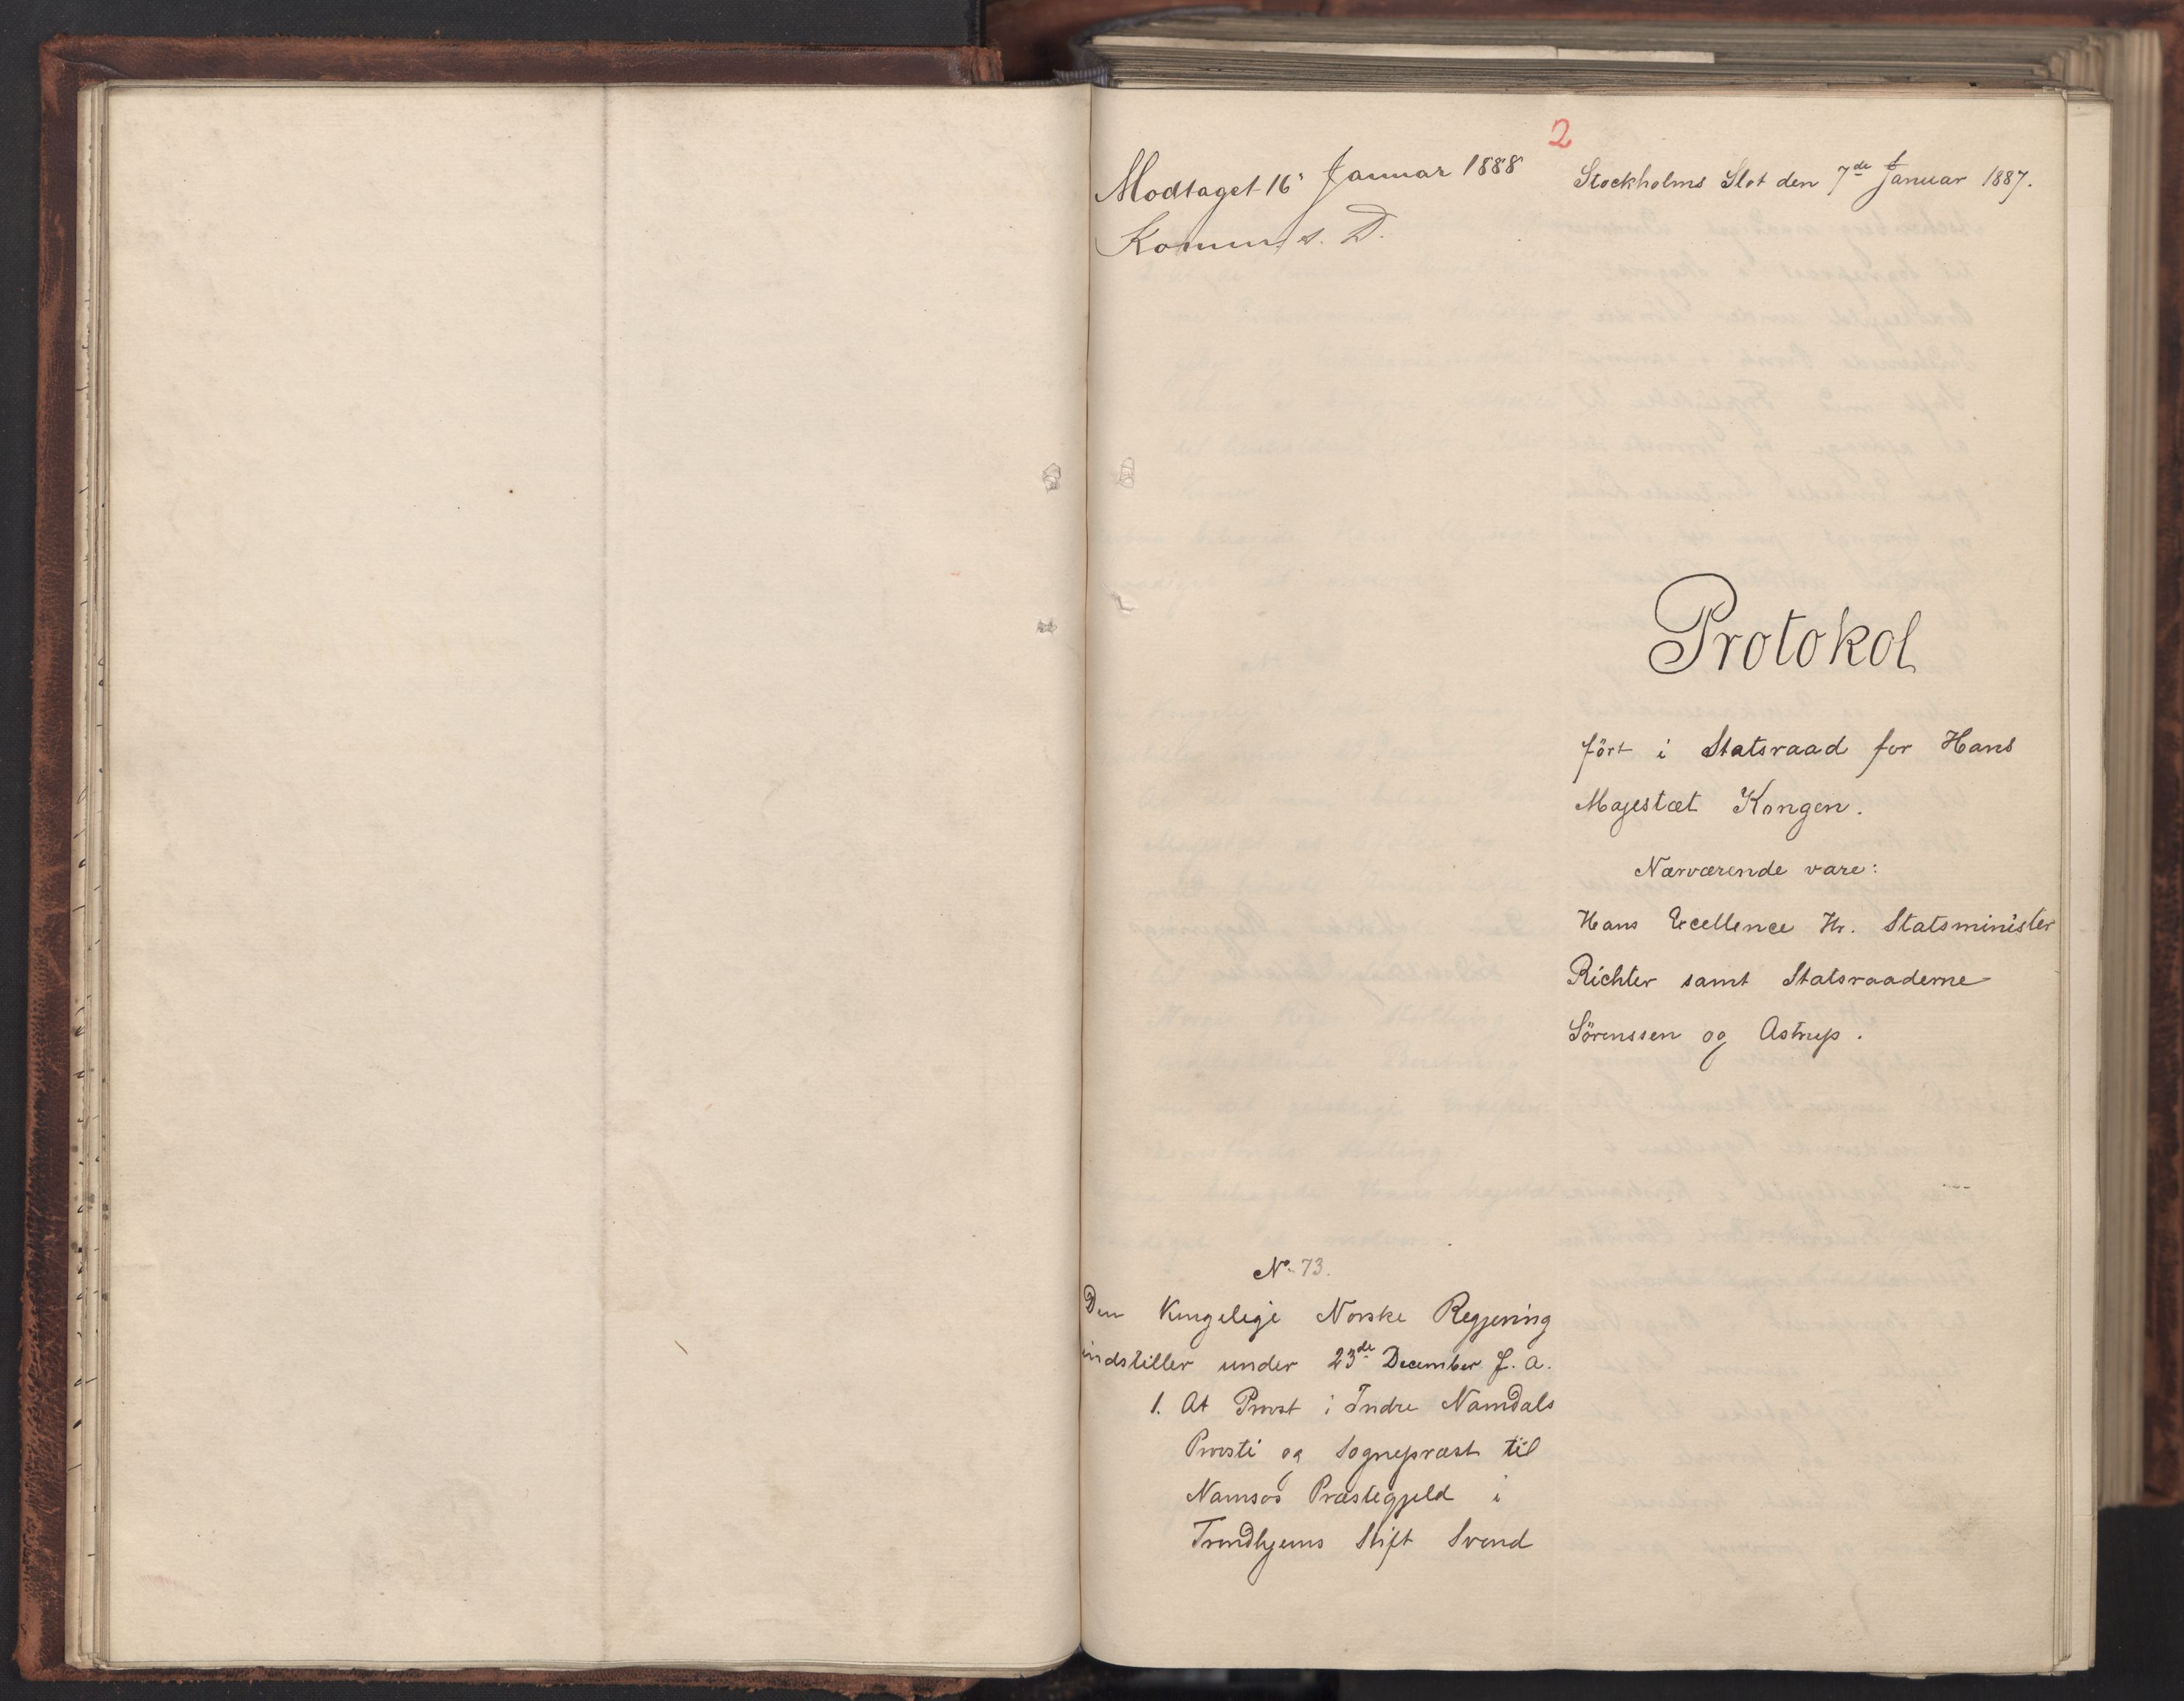 2
Modtaget 16' Januar 1888
Stockholms Slot den 7de Januar 1887.
Protokol
ført i Statsraad for Hans
Majestæt Kongen.
Nærværende vare:
Hans Excellence Hr. Statsminister
Richter samt Statsraaderne
Sørenssen og Astrup.
No 73.
Den Kongelige Norske Regjering
indstiller under 23de December f. A.
1. At Provst i Indre Namdals
Provsti og Sognepræst til
Namsos Præstegjeld i
Trondhjems Stift Svend